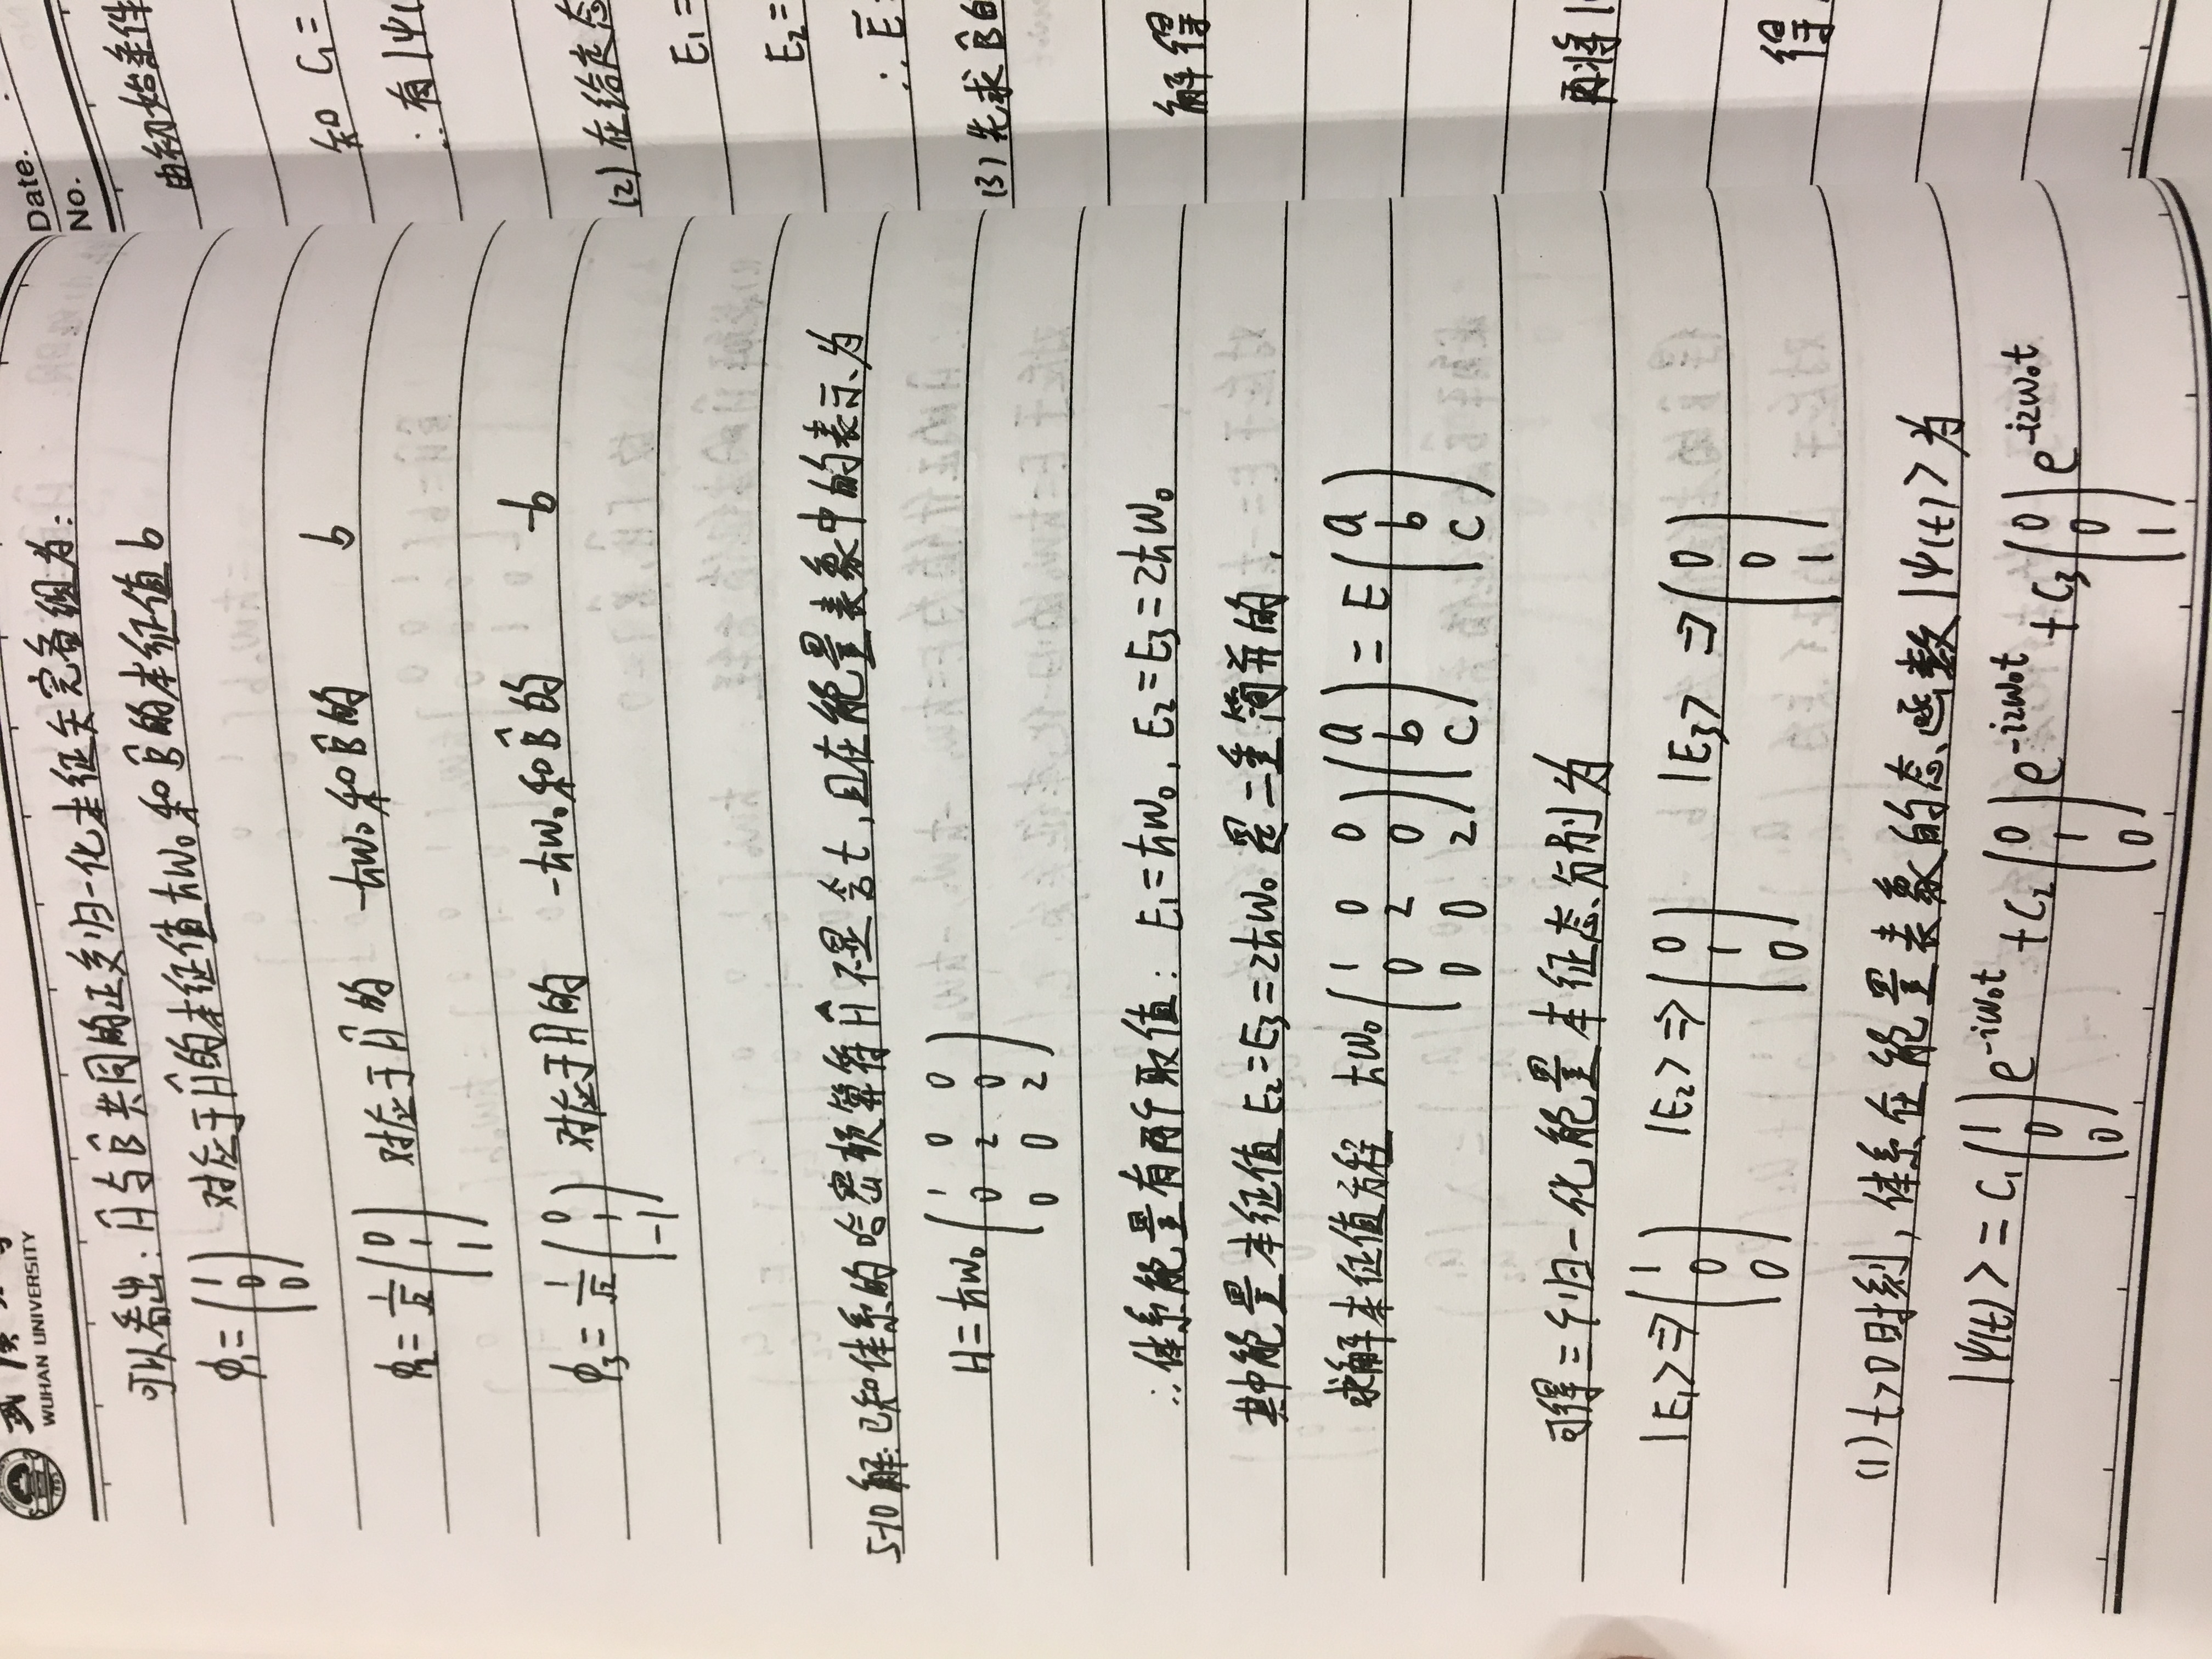 WUHAN UNIVERSITY
可以看出: Ĥ与B̂共同的正交归一化本征矢完备组为:
φ₁= (1 0 0) 对应于Ĥ的本征值ħω₀和B̂的本征值b
φ₂= 1/√2 (0 1 1) 对应于Ĥ的 -ħω₀和B̂的 b
φ₃= 1/√2 (0 1 -1) 对应于Ĥ的 -ħω₀和B̂的 -b
5-10解: 已知体系的哈密顿算符Ĥ不显含t,且在能量表象中的表示为
H= ħω₀ (1 0 0
0 2 0
0 0 2)
∴体系能量有两个取值: E₁=ħω₀, E₂=E₃=2ħω₀
其中能量本征值E₂=E₃=2ħω₀是二重简并的,
求解本征值方程 ħω₀ (1 0 0 (a = E (a
0 2 0 b b
0 0 2) c) c)
可得三个归一化能量本征态分别为
|E₁>⇒(1 0 0) |E₂>⇒(0 1 0) |E₃>⇒(0 0 1)
(1) t>0时刻, 体系在能量表象的态函数|ψ(t)>为
|ψ(t)> = C₁(1 0 0)e^-iω₀t + C₂(0 1 0)e^-i2ω₀t + C₃(0 0 1)e^-i2ω₀t
Date.
No.
由初始条件
知 C₁=
∴有|ψ(
(2) 在给定态
E₁=
E₂=
∴Ē
(3) 先求B̂的
解得
再将|
得